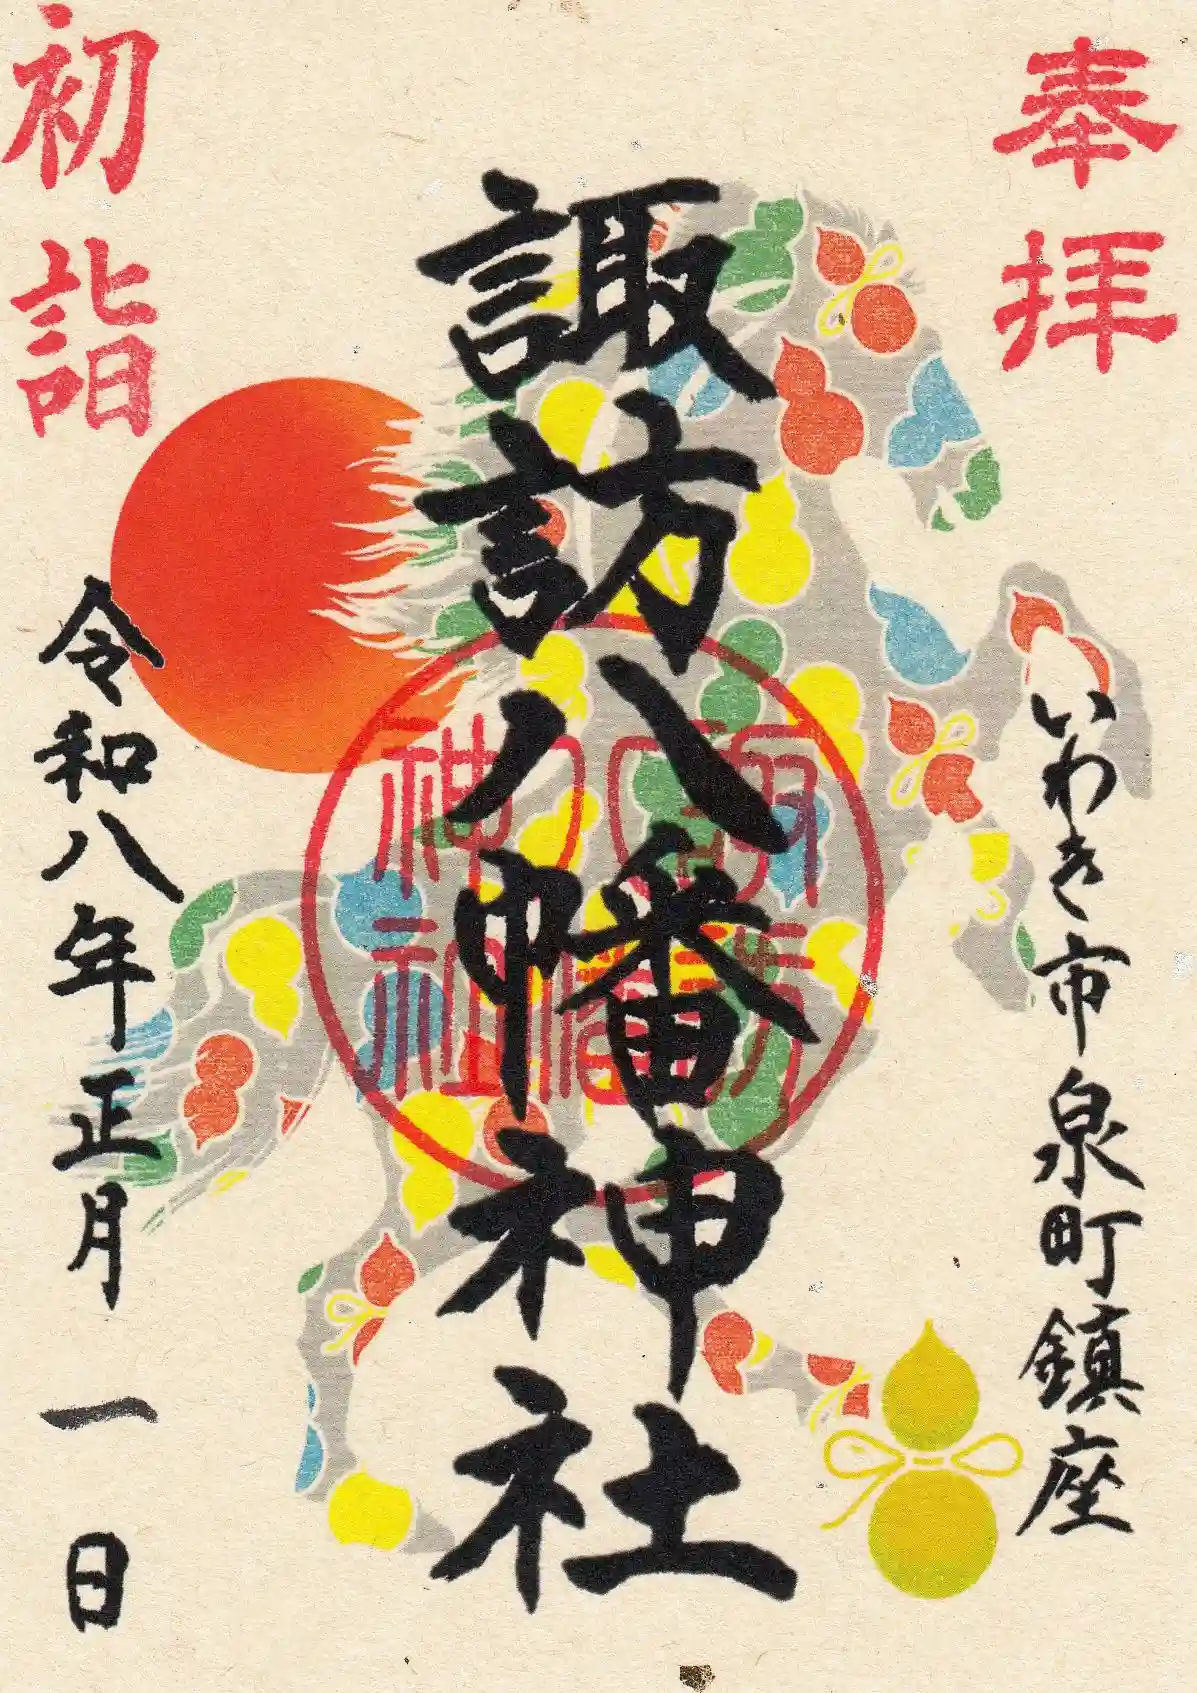 奉拝
いわき市泉町鎮座
諏訪八幡神社
諏訪八幡神社
初詣
令和八年正月一日